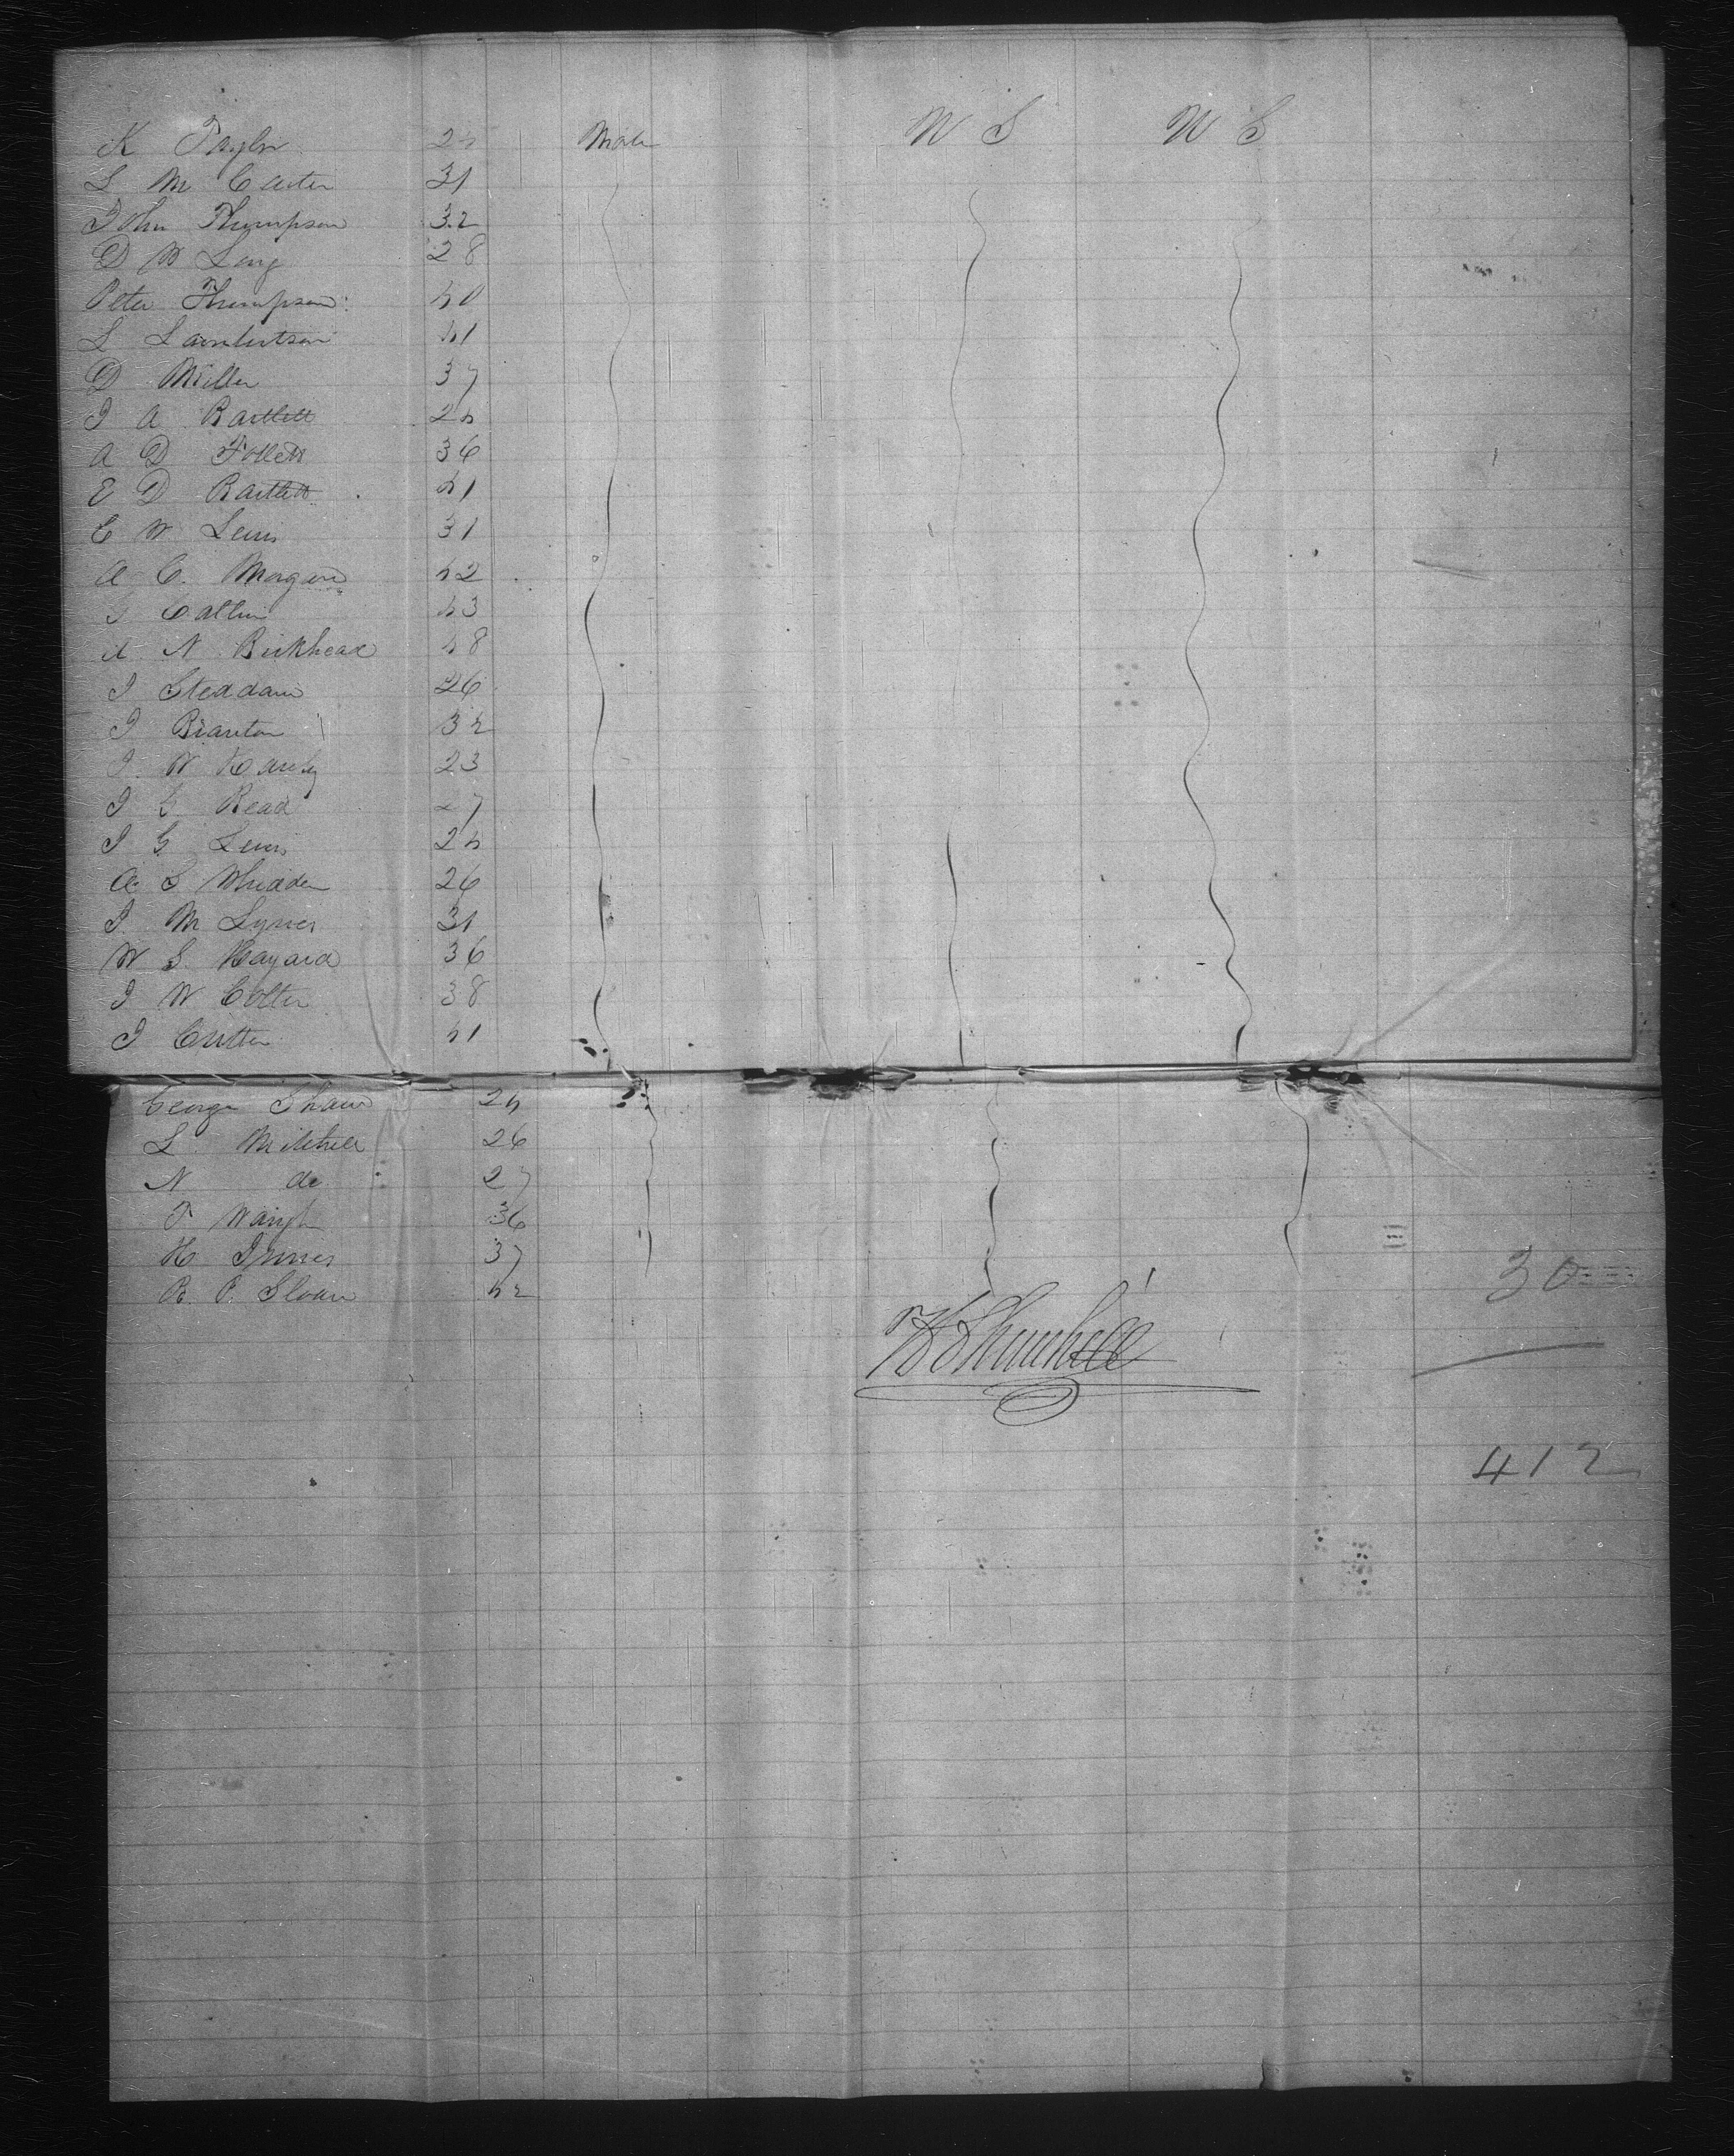 K Taylor 24 Male U S U S
L M Carter 31
John Thompson 32
D W Long 28
Peter Thompson 40
L Lambertson 41
D Miller 37
J A Bartlett 24
A D Follett 36
E D Bartlett 41
C W Lewis 31
A C. Morgan 42
J Catlin 43
A N Birkhead 48
J Steddam 26
J Branton 32
J. W 23
J G Read 27
J G Lewis 24
A S Whidden 26
J. M Lynes 31
W S. Hayard 36
J W Colter 38
J Critten 41
George Shaw 24
L. Mitchell 26
N do 27
T Waugh 36
H 37
R. P. Sloan 42
30
412